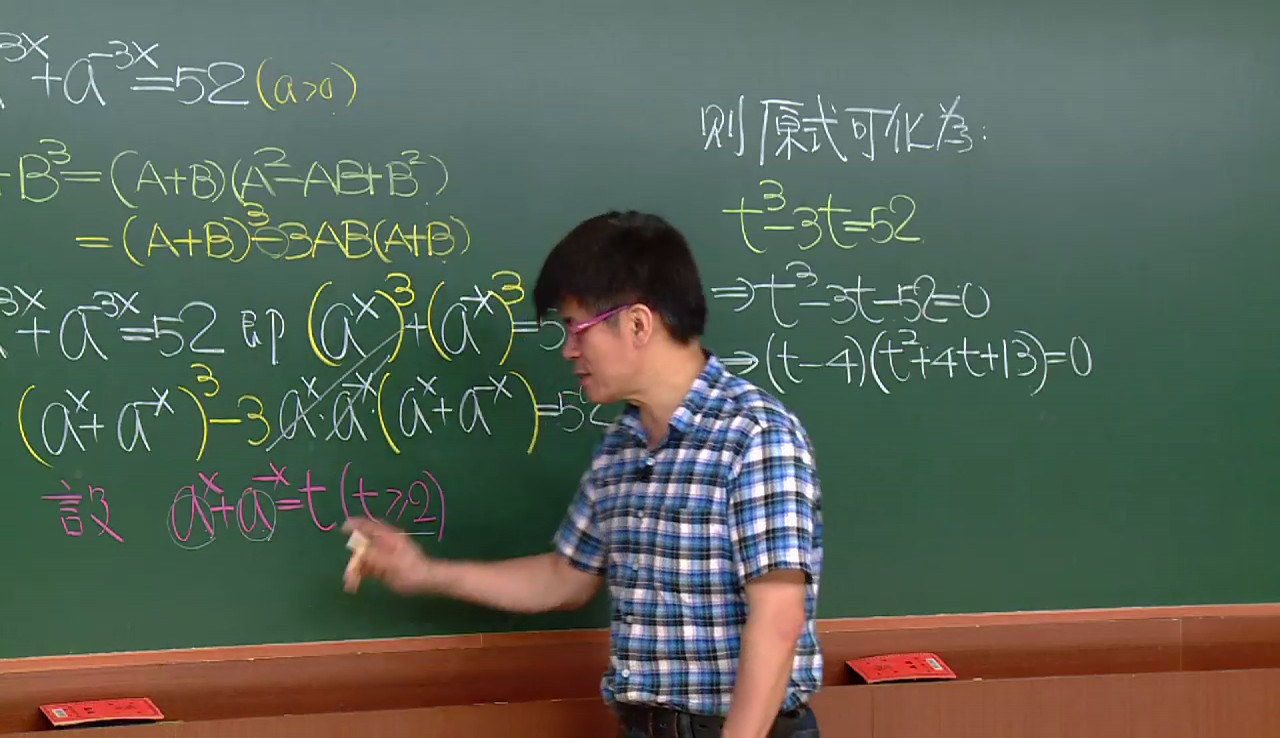 3x + a^{-3x} = 52 (a>0)
B³ = (A+B)(A²-AB+B²)
= (A+B)³-3AB(A+B)
3x + a^{-3x} = 52 即 (a^x)³+(a^{-x})³ = 5
(a^x+a^{-x})³-3a^x·a^{-x}·(a^x+a^{-x}) = 52
設 a^x+a^{-x} = t (t≥2)
则原式可化為:
t³-3t=52
⇒ t³-3t-52=0
⇒ (t-4)(t²+4t+13)=0